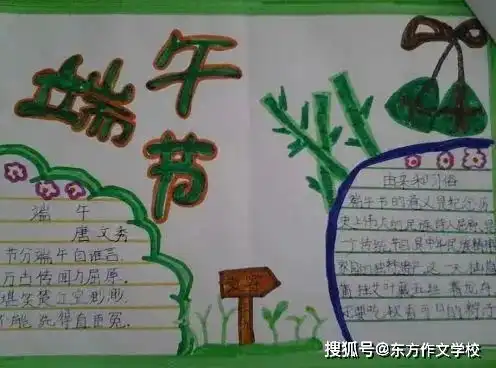 端午节
端 午
唐 文秀
节分端午自谁言,
万古传闻为屈原.
堪笑楚江空渺渺,
不能洗得直臣冤.
由来和习俗
端午节的意义是纪念历
史上伟大的民族诗人屈原,是
一个传统节日是中华民族精神
挂艾叶戴五丝 赛龙舟
搜狐号@东方作文学校